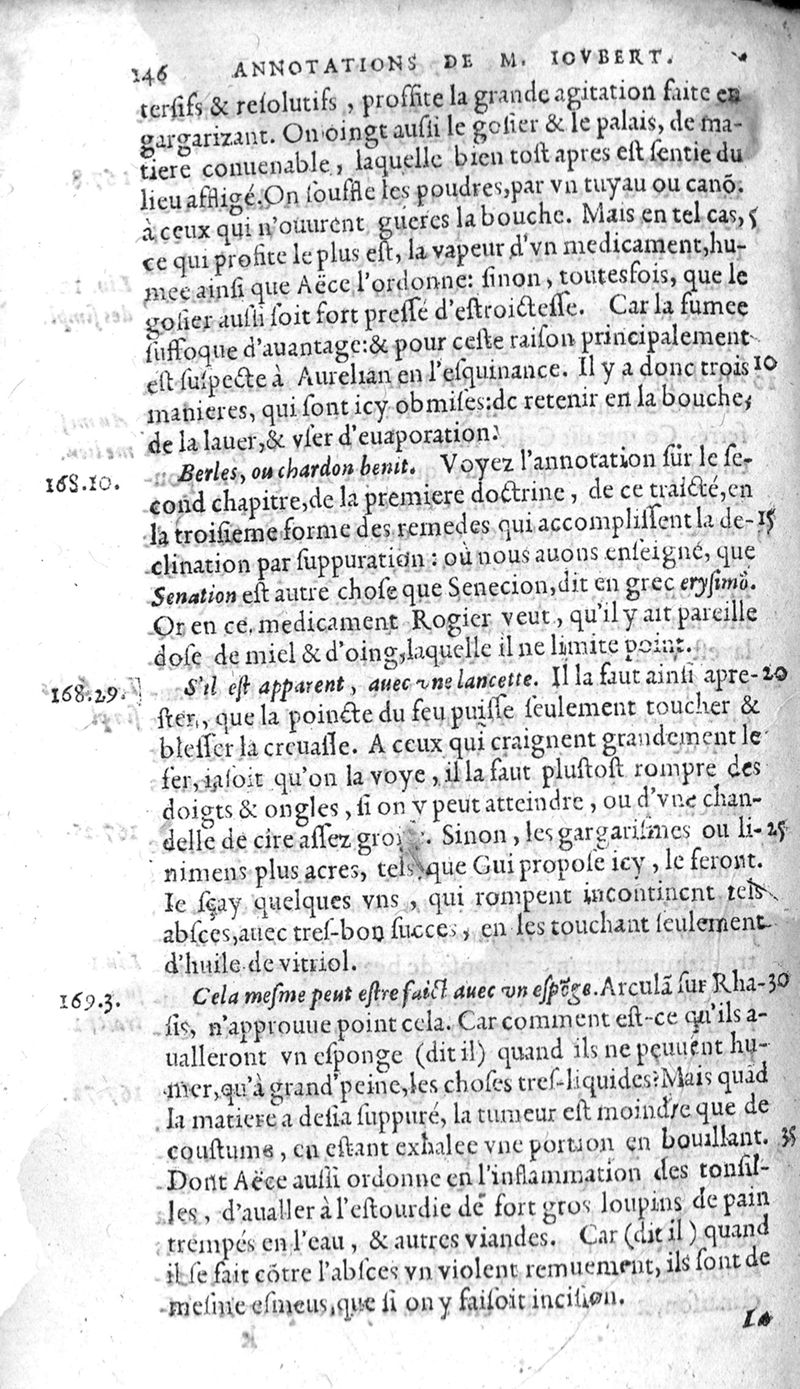 146 ANNOTATIONS DE M. IOVBERT.
tersifs & resolutifs, proffite la grande agitation faite en
gargarizant. On oingt aussi le gosier & le palais, de ma-
tiere conuenable, laquelle bien tost apres est sentie du
lieu affligé. On souffle les poudres, par vn tuyau ou canõ.
à ceux qui n'ouurent guéres la bouche. Mais en tel cas, 5
ce qui profite le plus est, la vapeur d'vn medicament, hu-
mee ainsi que Aëce l'ordonne: sinon, toutesfois, que le
gosier aussi soit fort pressé d'estroictesse. Car la fumee
suffoque d'auantage: & pour ceste raison principalement
est suspecte à Aurelian en l'esquinance. Il y a donc trois 10
manieres, qui sont icy obmises: de retenir en la bouche,
de la lauer, & vser d'euaporation.
168.10. Berles, ou chardon benit. Voyez l'annotation sur le se-
cond chapitre, de la premiere doctrine, de ce traicté, en
la troisieme forme des remedes qui accomplissent la de- 15
clination par suppuration: où nous auons enseigné, que
Senation est autre chose que Senecion, dit en grec erysimõ.
Or en ce medicament Rogier veut, qu'il y ait pareille
dose de miel & d'oing, laquelle il ne limite point.
168.29. S'il est apparent, auec vne lancette. Il la faut ainsi apre- 20
ster, que la poincte du feu puisse seulement toucher &
blesser la creuasse. A ceux qui craignent grandement le
fer, iasoit qu'on la voye, il la faut plustost rompre des
doigts & ongles, si on y peut atteindre, ou d'vne chan-
delle de cire assez . Sinon, les gargarismes ou li- 25
nimens plus acres, tels que Gui propose icy, le feront.
Ie sçay quelques vns, qui rompent incontinent tels
absces, auec tres-bon succes, en les touchant seulement
d'huile de vitriol.
169.3. Cela mesme peut estre faict auec vn espõge. Arculã sur Rha- 30
sis, n'approuue point cela. Car comment est-ce qu'ils a-
ualleront vn esponge (dit il) quand ils ne peuuent hu-
mer, qu'à grand'peine, les choses tres-liquides? Mais quãd
la matiere a desia suppuré, la tumeur est moindre que de
coustume, en estant exhalee vne portion en bouillant. 35
Dont Aëce aussi ordonne en l'inflammation des tonsil-
les, d'aualler à l'estourdie de fort gros loupins de pain
trempés en l'eau, & autres viandes. Car (dit il) quand
il se fait cõtre l'absces vn violent remuement, ils sont de
mesme esmeus, que si on y faisoit incision.
La